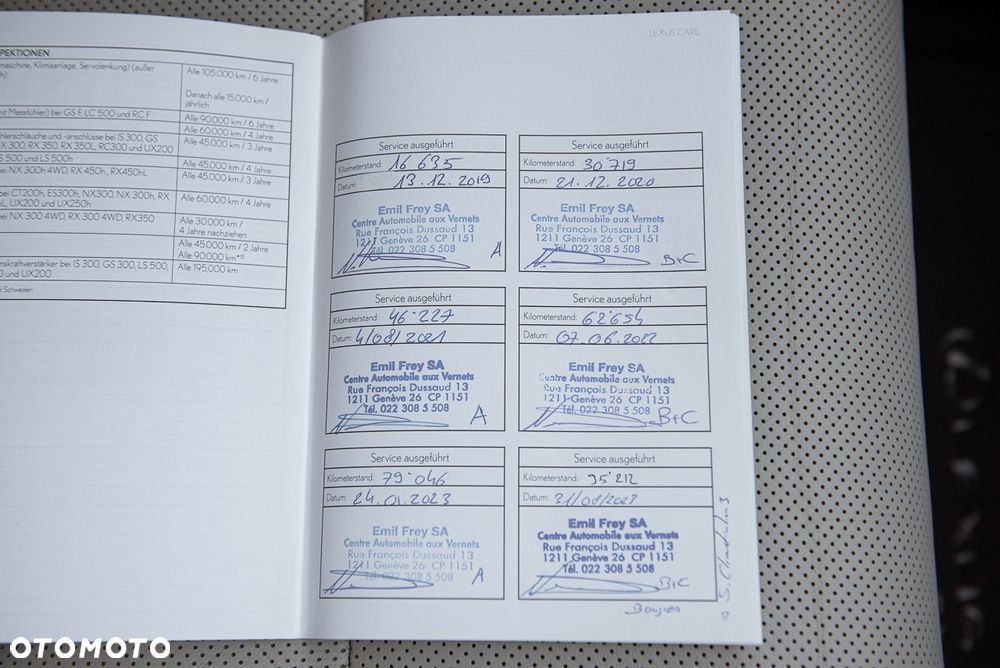 PEKTIONEN
maschine, Klimaanlage, Servolenkung) (außer
Alle 105.000 km / 6 Jahre
Danach alle 15.000 km /
jährlich
mit Messfühler) bei GS F, LC 500 und RC F
Alle 90.000 km / 6 Jahre
hlerschläuche und -anschlüsse bei IS 300, GS
RX 300, RX 350, RX 350L, RC300 und UX200
Alle 60.000 km / 4 Jahre
Alle 45.000 km / 3 Jahre
S 500 und LS 500h
Alle 45.000 km / 4 Jahre
bei NX 300h 4WD, RX 450h, RX450hL
Alle 45.000 km / 3 Jahre
bei CT200h, ES300h, NX300, NX 300h, RX
UX200 und UX250h
Alle 60.000 km / 4 Jahre
bei NX 300 4WD, RX 300 4WD, RX350
Alle 30.000 km /
4 Jahre nachziehen
Alle 45.000 km / 2 Jahre
Alle 90.000 km
mskraftverstärker bei IS 300, GS 300, LS 500,
und UX200
Alle 195.000 km
d Schweden
LEXUS CARE
Service ausgeführt
Kilometerstand: 16 635
Datum: 13.12.2019
Emil Frey SA
Centre Automobile aux Vernets
Rue François Dussaud 13
1211 Genève 26 CP 1151
Tél. 022 308 5 508
A
Service ausgeführt
Kilometerstand: 30 719
Datum: 21.12.2020
Emil Frey SA
Centre Automobile aux Vernets
Rue François Dussaud 13
1211 Genève 26 CP 1151
Tél. 022 308 5 508
B+C
Service ausgeführt
Kilometerstand: 46'227
Datum: 4/08/2021
Emil Frey SA
Centre Automobile aux Vernets
Rue François Dussaud 13
1211 Genève 26 CP 1151
Tél. 022 308 5 508
A
Service ausgeführt
Kilometerstand: 62'654
Datum: 07.06.2022
Emil Frey SA
Centre Automobile aux Vernets
Rue François Dussaud 13
1211 Genève 26 CP 1151
Tél. 022 308 5 508
B+C
Service ausgeführt
Kilometerstand: 79'046
Datum: 24.01.2023
Emil Frey SA
Centre Automobile aux Vernets
Rue François Dussaud 13
1211 Genève 26 CP 1151
Tél. 022 308 5 508
A
Service ausgeführt
Kilometerstand: 95'212
Datum: 31/08/2023
Emil Frey SA
Centre Automobile aux Vernets
Rue François Dussaud 13
1211 Genève 26 CP 1151
Tél. 022 308 5 508
B+C
OTOMOTO